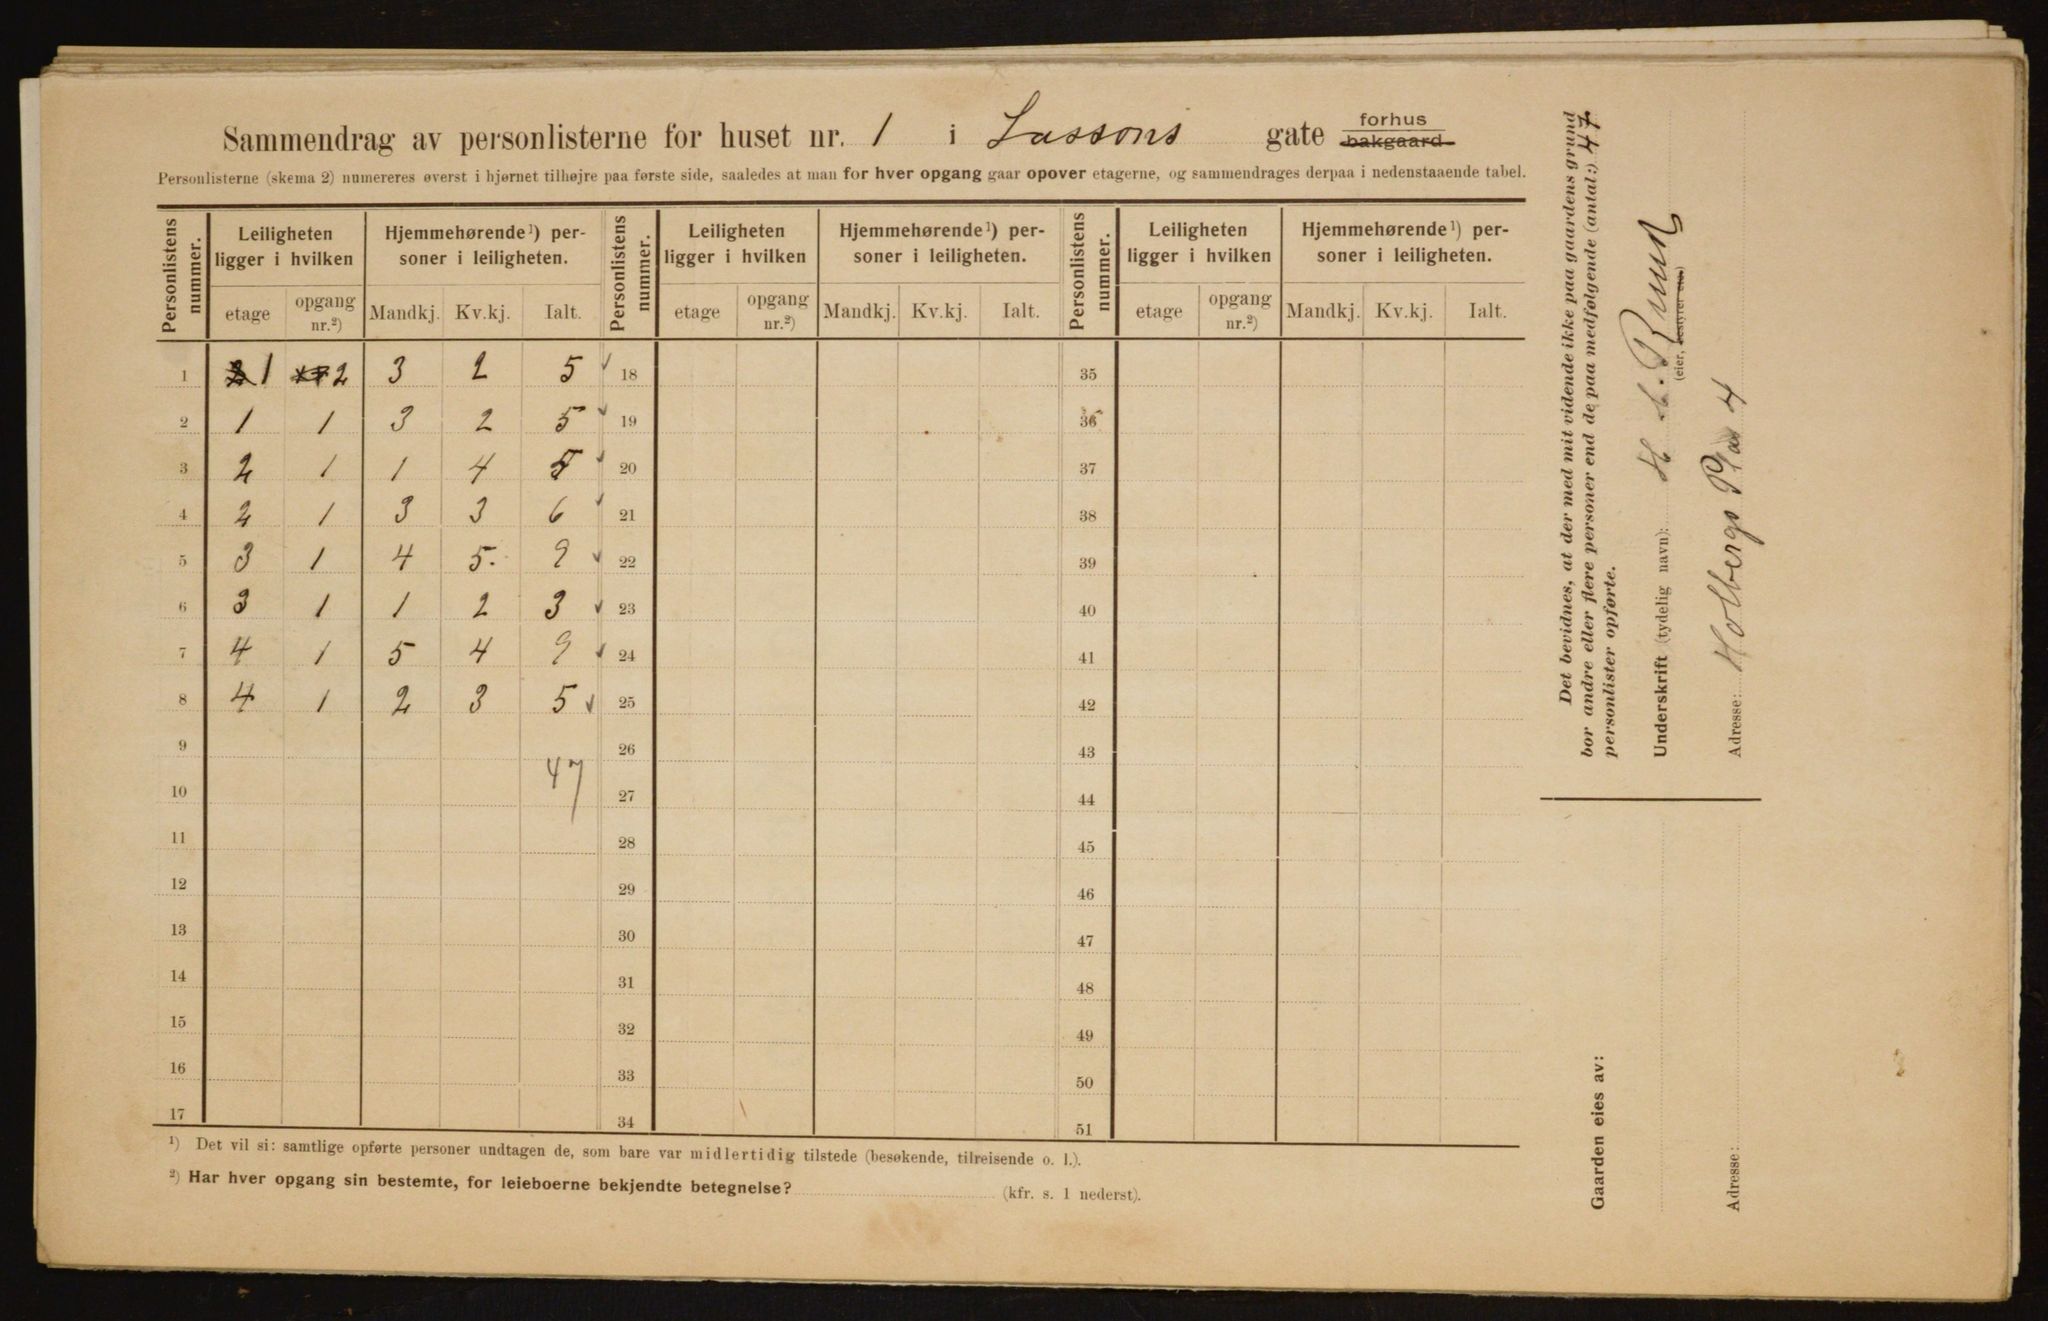 Sammendrag av personlisterne for huset nr. 1 i Lassons gate forhus bakgaard
Personlisterne (skema 2) numereres øverst i hjørnet tilhøjre paa første side, saaledes at man for hver opgang gaar opover etagerne, og sammendrages derpaa i nedenstaaende tabel.
Personlistens nummer. Leiligheten ligger i hvilken Hjemmehørende ¹) personer i leiligheten. Personlistens nummer. Leiligheten ligger i hvilken Hjemmehørende ¹) personer i leiligheten. Personlistens nummer. Leiligheten ligger i hvilken Hjemmehørende ¹) personer i leiligheten.
etage opgang nr.²) Mandkj. Kv.kj. Ialt. etage opgang nr.²) Mandkj. Kv.kj. Ialt. etage opgang nr.²) Mandkj. Kv.kj. Ialt.
1 1 2 3 2 5 18 35
2 1 1 3 2 5 19 36
3 2 1 1 4 5 20 37
4 2 1 3 3 6 21 38
5 3 1 4 5. 9 22 39
6 3 1 1 2 3 23 40
7 4 1 5 4 9 24 41
8 4 1 2 3 5 25 42
9 26 43
47
10 27 44
11 28 45
12 29 46
13 30 47
14 31 48
15 32 49
16 33 50
17 34 51
¹) Det vil si: samtlige opførte personer undtagen de, som bare var midlertidig tilstede (besøkende, tilreisende o. l.).
²) Har hver opgang sin bestemte, for leieboerne bekjendte betegnelse? (kfr. s. 1 nederst).
Det bevidnes, at der med mit vidende ikke paa gaardens grund
bor andre eller flere personer end de paa medfølgende (antal:) 47
personlister opførte.
Underskrift (tydelig navn): H. Ruud
(eier, bestyrer etc.)
Adresse: Holbergs Plas 4
Gaarden eies av:
Adresse: